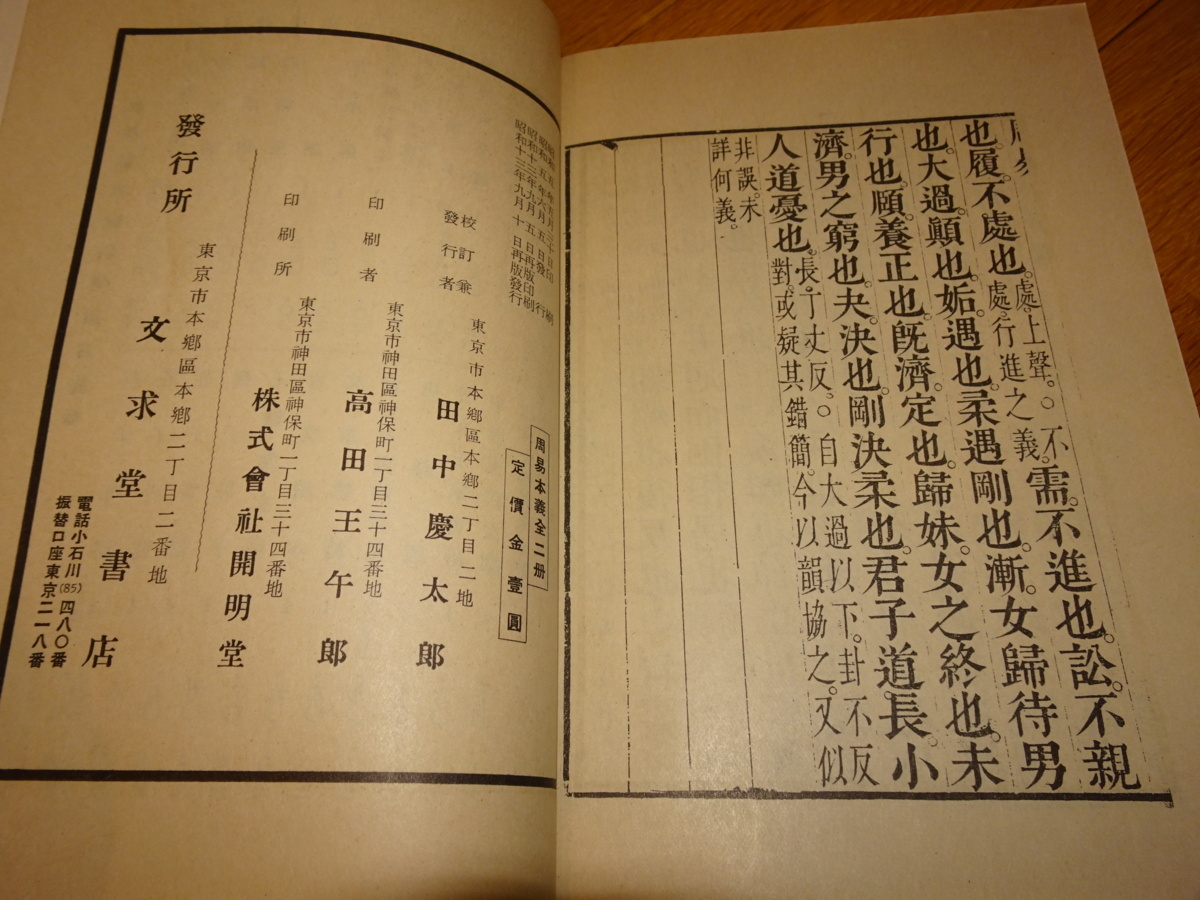 也。履。不處也。處。上聲。○不
處。行進之義。需。不進也。訟。不親
也。大過。顛也。姤。遇也。柔遇剛也。漸。女歸待男
行也。頤。養正也。既濟。定也。歸妹。女之終也。未
濟。男之窮也。夬。決也。剛決柔也。君子道。長。小
人道憂也。長。丁丈反。○自大過以下。卦不反
對。或疑其錯簡。今以韻協之。又似
非誤。未
詳何義。
昭和五年五月三十日印刷
昭和五年六月五日發行
昭和十三年九月五日再版印刷
昭和十三年九月十日再版發行
周易本義全二册
定價金壹圓
校訂兼
發行者
東京市本鄉區本鄉二丁目二地
田中慶太郎
印刷者
東京市神田區神保町一丁目三十四番地
高田王午郎
印刷所
東京市神田區神保町一丁目三十四番地
株式會社開明堂
發行所
東京市本鄉區本鄉二丁目二番地
文求堂書店
電話小石川(85)四八〇番
振替口座東京二一八番